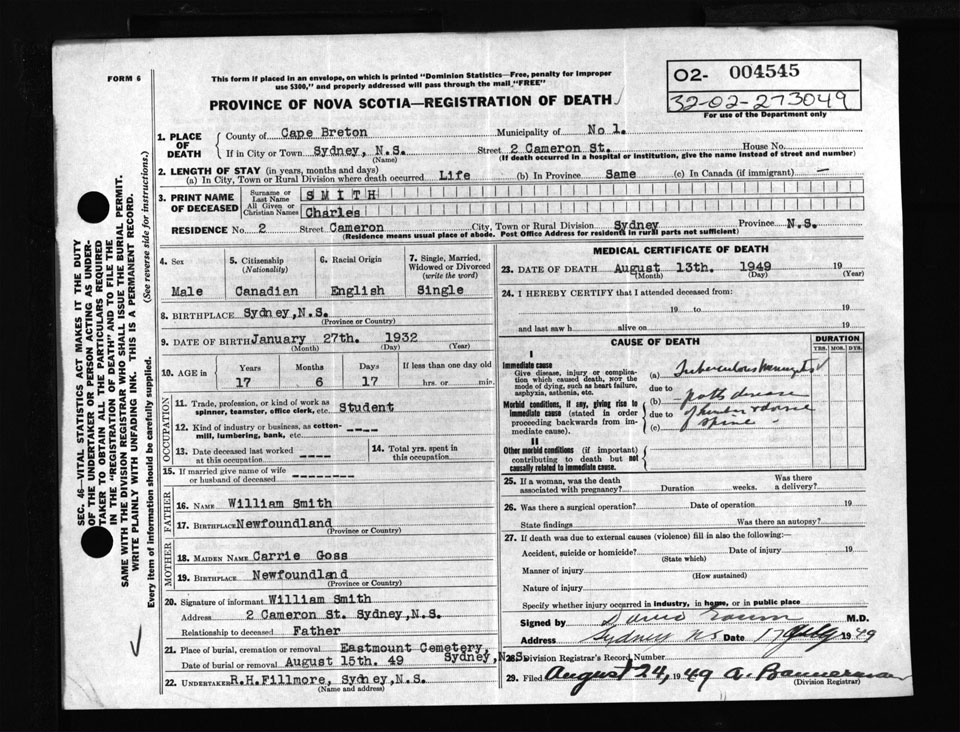 FORM 6
This form if placed in an envelope, on which is printed "Dominion Statistics—Free, penalty for improper
use $300," and properly addressed will pass through the mail "FREE"
02- 004545
32-02-273049
For use of the Department only
PROVINCE OF NOVA SCOTIA—REGISTRATION OF DEATH
1. PLACE OF DEATH
County of Cape Breton Municipality of No 1.
If in City or Town Sydney, N.S. Street 2 Cameron St. House No.
(Name) (If death occurred in a hospital or institution, give the name instead of street and number)
2. LENGTH OF STAY (in years, months and days)
(a) In City, Town or Rural Division where death occurred Life (b) In Province Same (c) In Canada (if immigrant) —
3. PRINT NAME OF DECEASED
Surname or Last Name SMITH
All Given or Christian Names Charles
RESIDENCE No. 2 Street Cameron City, Town or Rural Division Sydney Province N.S.
(Residence means usual place of abode. Post Office Address for residents in rural parts not sufficient)
4. Sex Male
5. Citizenship (Nationality) Canadian
6. Racial Origin English
7. Single, Married, Widowed or Divorced (write the word) Single
8. BIRTHPLACE Sydney, N.S.
(Province or Country)
9. DATE OF BIRTH January 27th. 1932
(Month) (Day) (Year)
10. AGE in Years Months Days If less than one day old
17 6 17 hrs. or min.
OCCUPATION
11. Trade, profession, or kind of work as
spinner, teamster, office clerk, etc. Student
12. Kind of industry or business, as cotton-
mill, lumbering, bank, etc. ----
13. Date deceased last worked
at this occupation ----
14. Total yrs. spent in
this occupation
15. If married give name of wife
or husband of deceased --------
FATHER
16. NAME William Smith
17. BIRTHPLACE Newfoundland
(Province or Country)
MOTHER
18. MAIDEN NAME Carrie Goss
19. BIRTHPLACE Newfoundland
(Province or Country)
20. Signature of informant William Smith
Address 2 Cameron St. Sydney, N.S.
Relationship to deceased Father
21. Place of burial, cremation or removal Eastmount Cemetery,
Sydney, N.S.
Date of burial or removal August 15th. 49
22. UNDERTAKER R.H. Fillmore, Sydney, N.S.
(Name and address)
MEDICAL CERTIFICATE OF DEATH
23. DATE OF DEATH August 13th. 1949 19
(Month) (Day) (Year)
24. I HEREBY CERTIFY that I attended deceased from:
19 to 19
and last saw h alive on 19
CAUSE OF DEATH
DURATION
YRS. MOS. DYS.
I
Immediate cause
Give disease, injury or complica-
tion which caused death, NOT the
mode of dying, such as heart failure,
asphyxia, asthenia, etc.
(a) Tuberculous
due to
Morbid conditions, if any, giving rise to
immediate cause (stated in order
proceeding backwards from im-
mediate cause).
(b) potts disease
due to of
(c) spine
II
Other morbid conditions (if important)
contributing to death but not
causally related to immediate cause.
25. If a woman, was the death
associated with pregnancy? Duration weeks. Was there
a delivery?
26. Was there a surgical operation? Date of operation 19
State findings Was there an autopsy?
27. If death was due to external causes (violence) fill in also the following:—
Accident, suicide or homicide? Date of injury 19
(State which)
Manner of injury
(How sustained)
Nature of injury
Specify whether injury occurred in industry, in home, or in public place
Signed by M.D.
Address Sydney NS Date 17 1949
28. Division Registrar's Record Number
29. Filed August 24, 1949 A. Bannerman
(Division Registrar)
SEC. 46—VITAL STATISTICS ACT MAKES IT THE DUTY
OF THE UNDERTAKER OR PERSON ACTING AS UNDER-
TAKER TO OBTAIN ALL THE PARTICULARS REQUIRED
IN THE "REGISTRATION OF DEATH" AND TO FILE THE
SAME WITH THE DIVISION REGISTRAR WHO SHALL ISSUE THE BURIAL PERMIT.
WRITE PLAINLY WITH UNFADING INK. THIS IS A PERMANENT RECORD.
Every item of information should be carefully supplied. (See reverse side for instructions.)